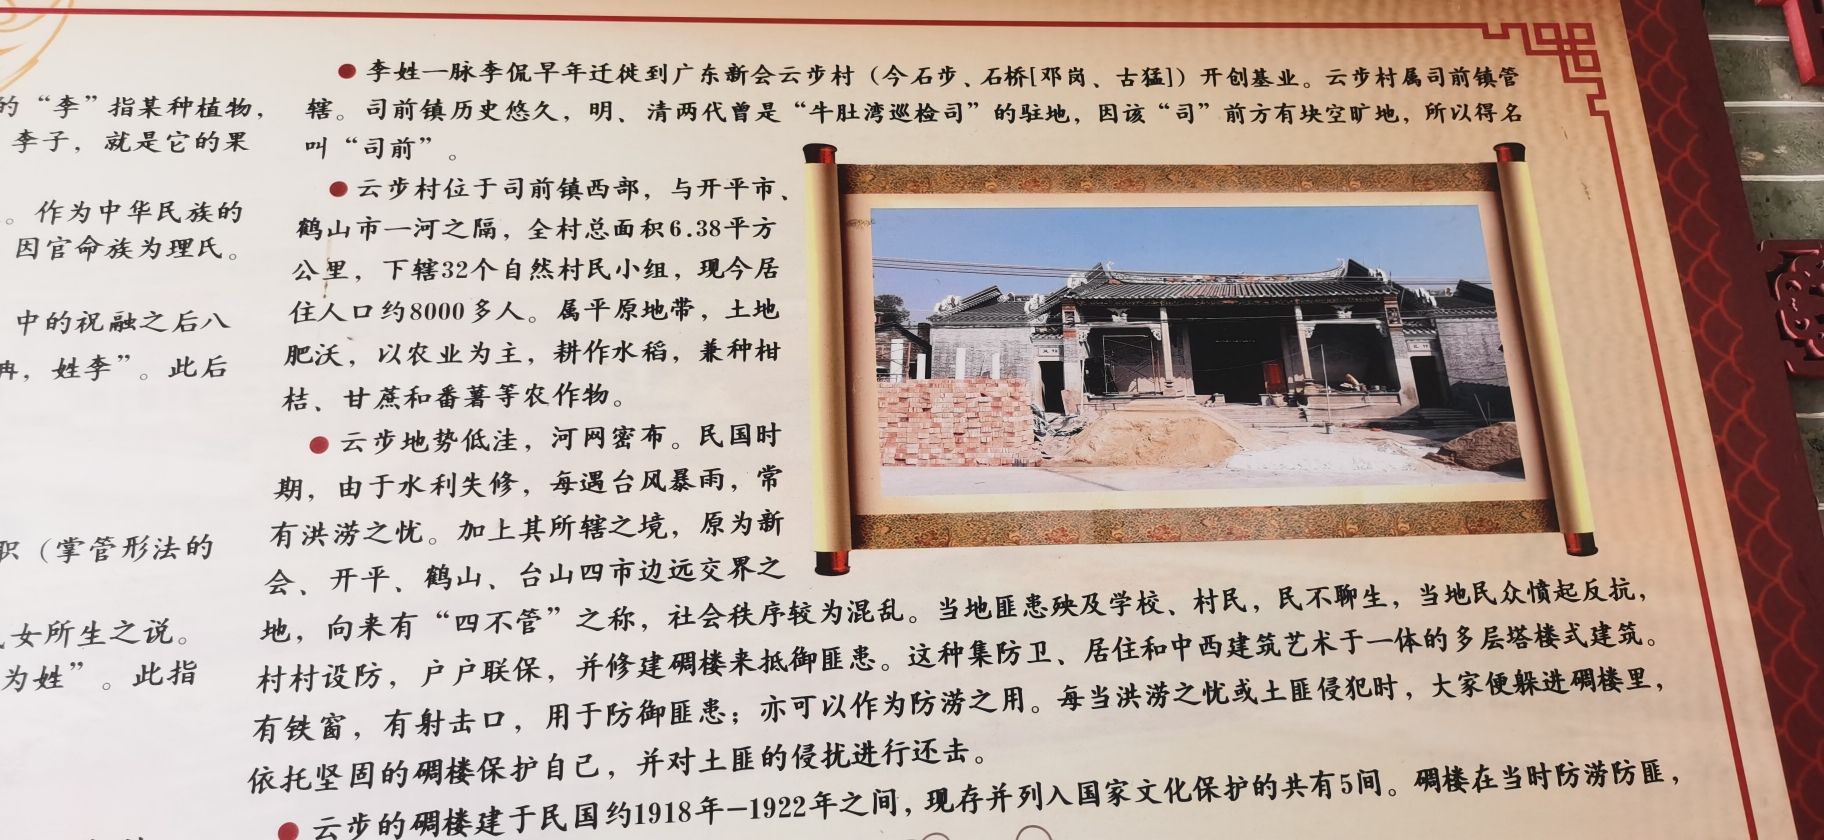 的“李”指某种植物，
李子，就是它的果
。作为中华民族的
因官命族为理氏。
中的祝融之后八
冉，姓李”。此后
职（掌管形法的
女所生之说。
为姓”。此指
●李姓一脉李侃早年迁徙到广东新会云步村（今石步、石桥[邓岗、古猛]）开创基业。云步村属司前镇管
辖。司前镇历史悠久，明、清两代曾是“牛肚湾巡检司”的驻地，因该“司”前方有块空旷地，所以得名
叫“司前”。
●云步村位于司前镇西部，与开平市、
鹤山市一河之隔，全村总面积6.38平方
公里，下辖32个自然村民小组，现今居
住人口约8000多人。属平原地带，土地
肥沃，以农业为主，耕作水稻，兼种柑
桔、甘蔗和番薯等农作物。
●云步地势低洼，河网密布。民国时
期，由于水利失修，每遇台风暴雨，常
有洪涝之忧。加上其所辖之境，原为新
会、开平、鹤山、台山四市边远交界之
地，向来有“四不管”之称，社会秩序较为混乱。当地匪患殃及学校、村民，民不聊生，当地民众愤起反抗，
村村设防，户户联保，并修建碉楼来抵御匪患。这种集防卫、居住和中西建筑艺术于一体的多层塔楼式建筑。
有铁窗，有射击口，用于防御匪患；亦可以作为防涝之用。每当洪涝之忧或土匪侵犯时，大家便躲进碉楼里，
依托坚固的碉楼保护自己，并对土匪的侵扰进行还击。
●云步的碉楼建于民国约1918年—1922年之间，现存并列入国家文化保护的共有5间。碉楼在当时防涝防匪，